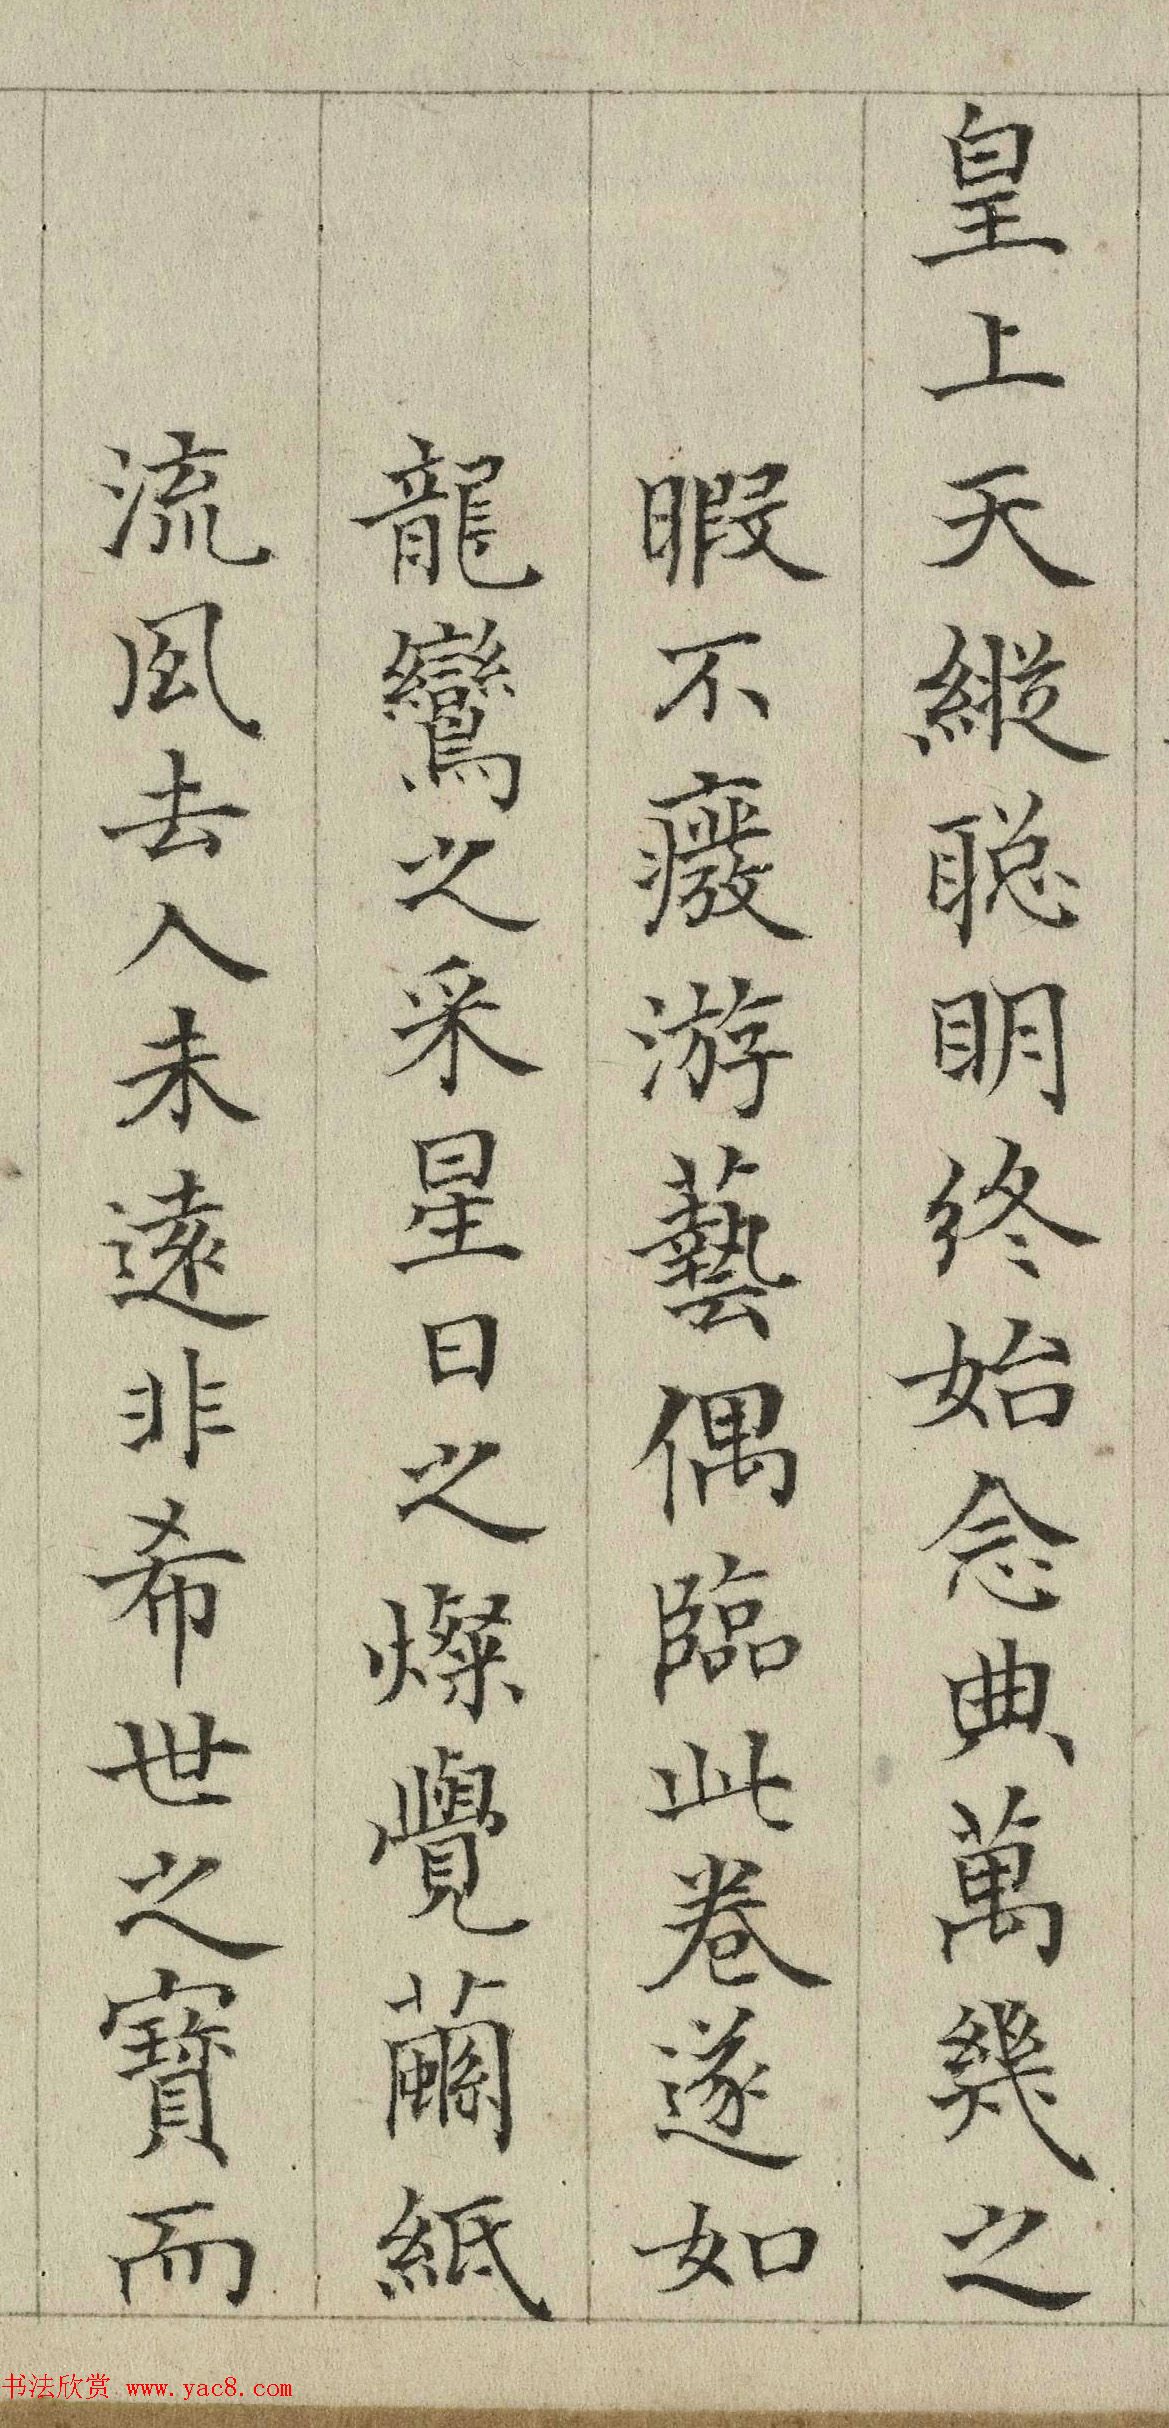 皇上天縱聡明終始念典萬幾之
暇不廢游藝偶臨此卷遂如
龍鸞之采星日之燦覺繭紙
流風去人未遠非希世之寶而
书法欣赏 www.yac8.com